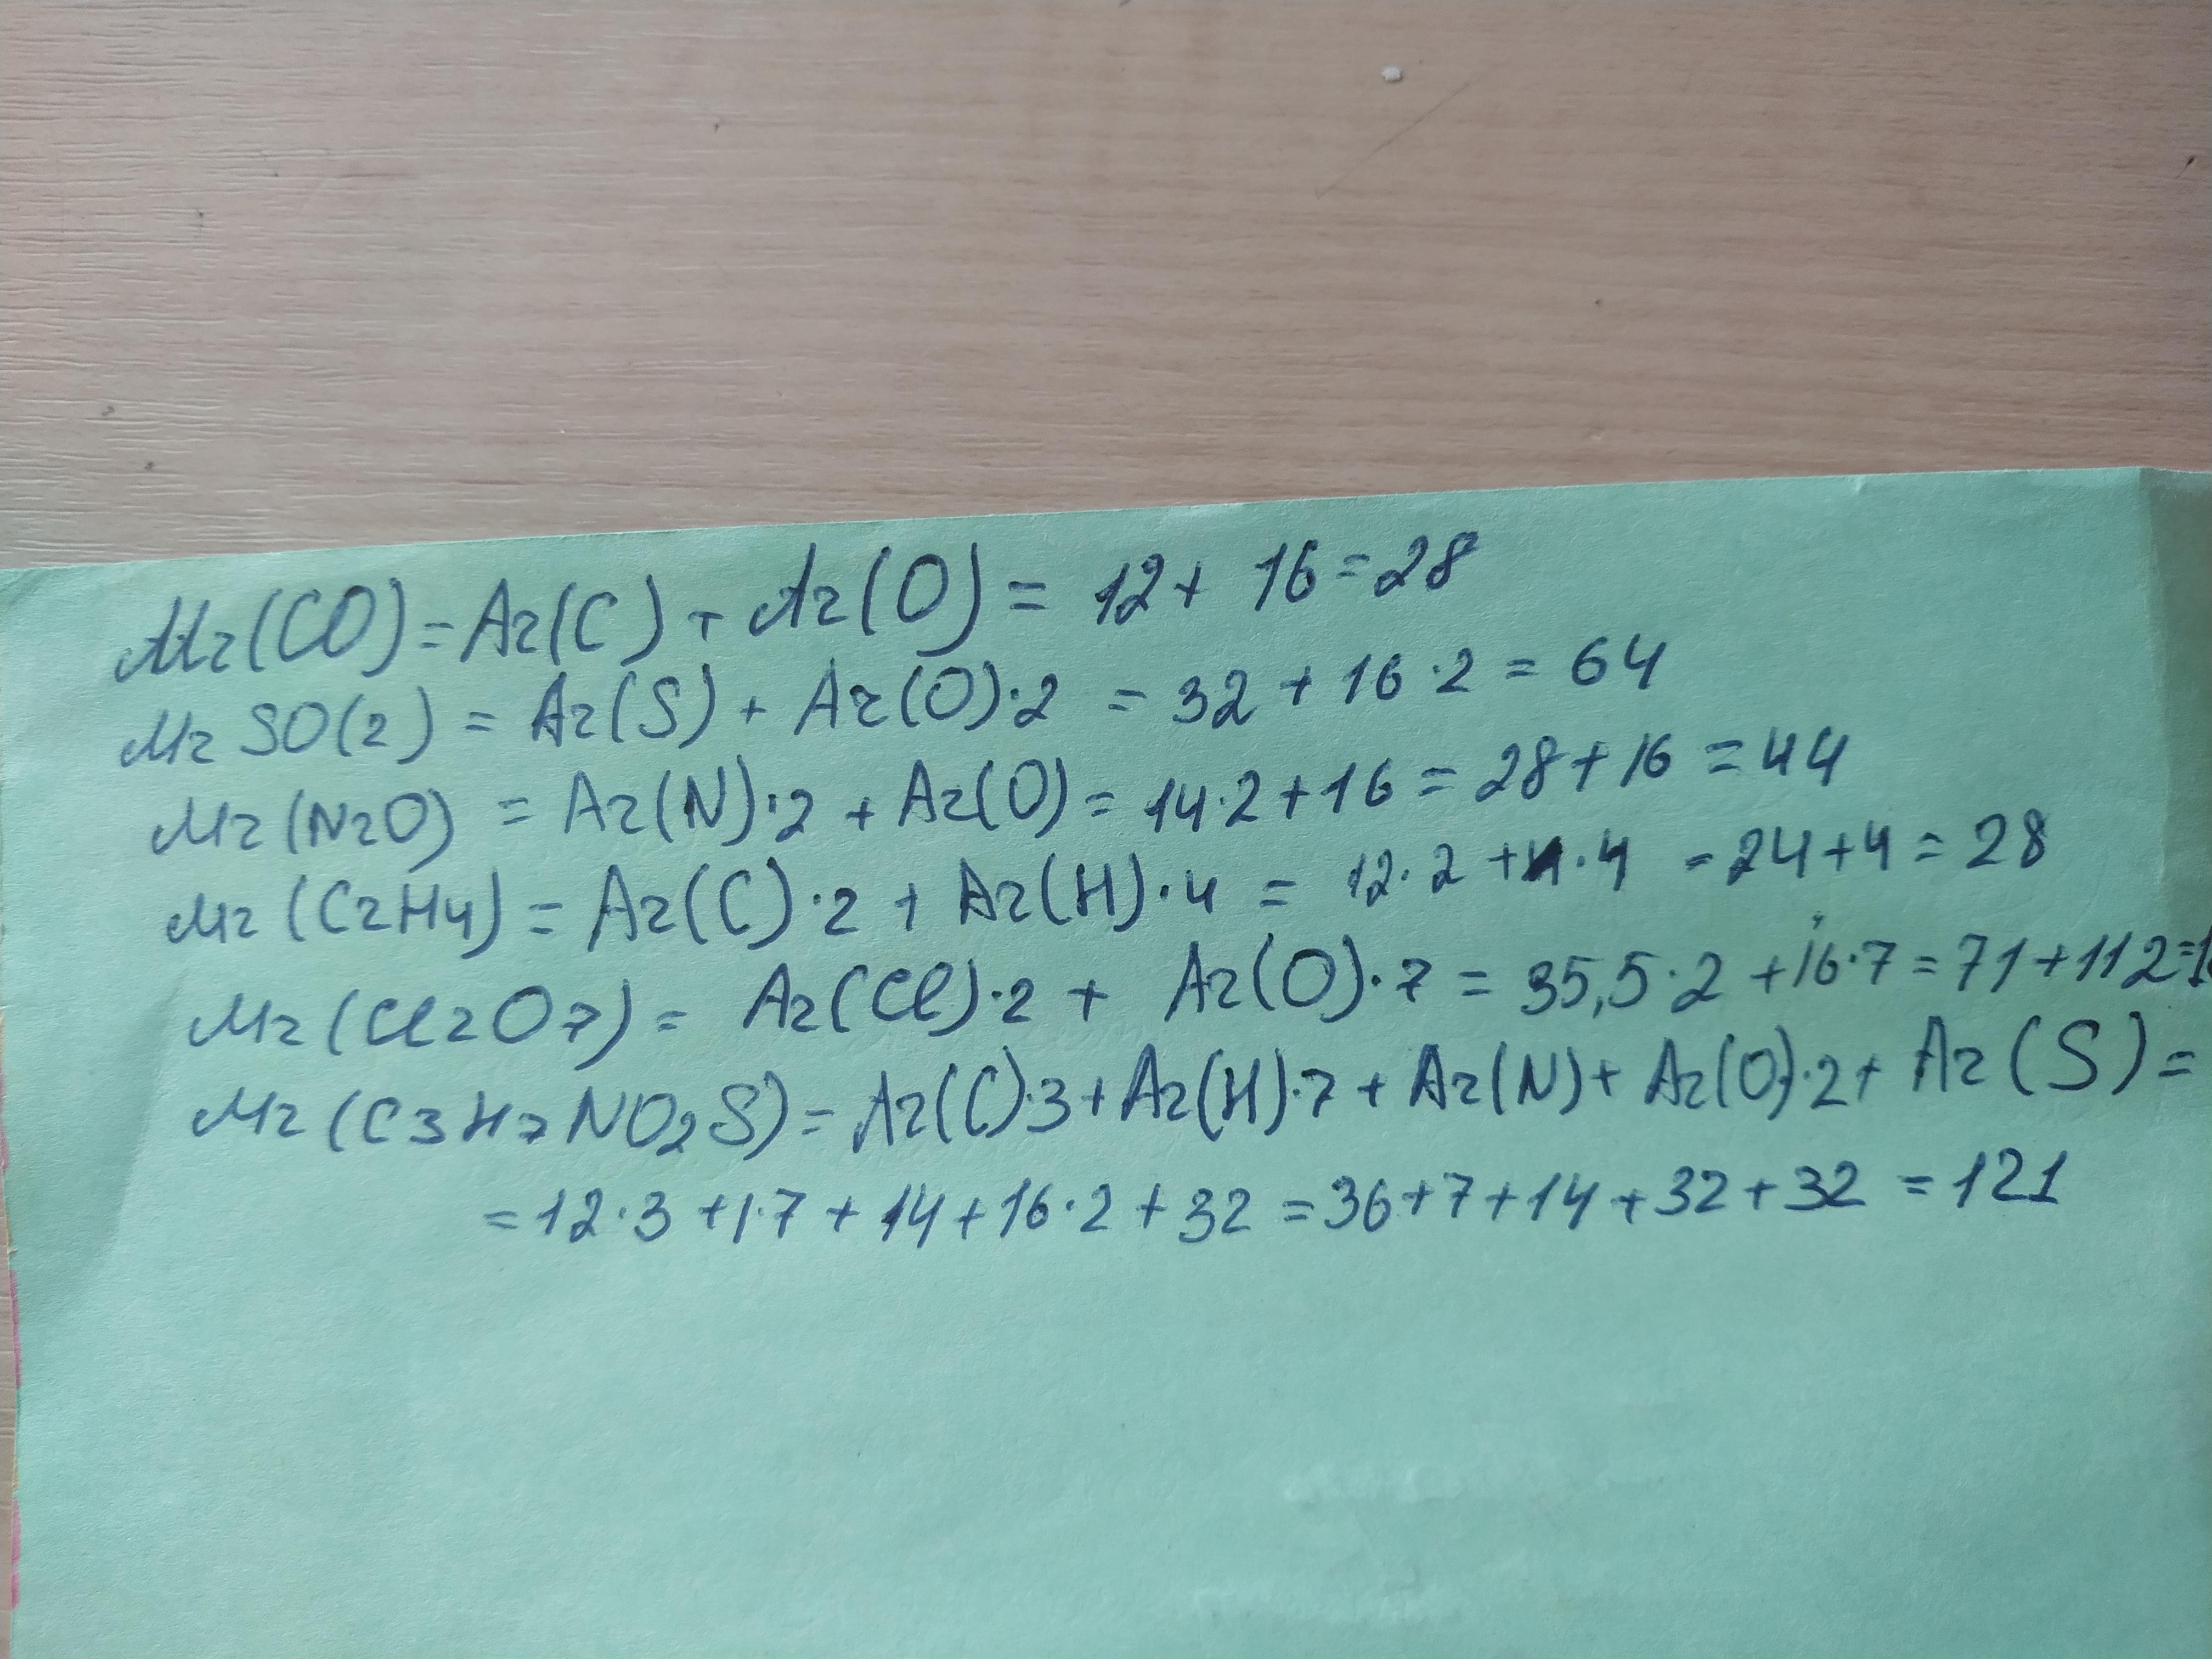 Mr(CO)=Ar(C)+Ar(O)= 12+ 16=28
Mr SO(2) = Ar(S) + Ar(O)·2 = 32 + 16·2 = 64
Mr (N2O) = Ar(N)·2 + Ar(O)= 14·2+16 = 28+16 =44
Mr (C2H4) = Ar(C)·2 + Ar(H)·4 = 12·2 +1·4 =24+4=28
Mr (Cl2O7)= Ar(Cl)·2 + Ar(O)·7 = 35,5·2 +16·7=71+112=1
Mr (C3H7NO2S)= Ar(C)·3+Ar(H)·7+Ar(N)+Ar(O)·2+ Ar(S)=
=12·3 +1·7 + 14+16·2 +32 =36+7+14+32+32 =121